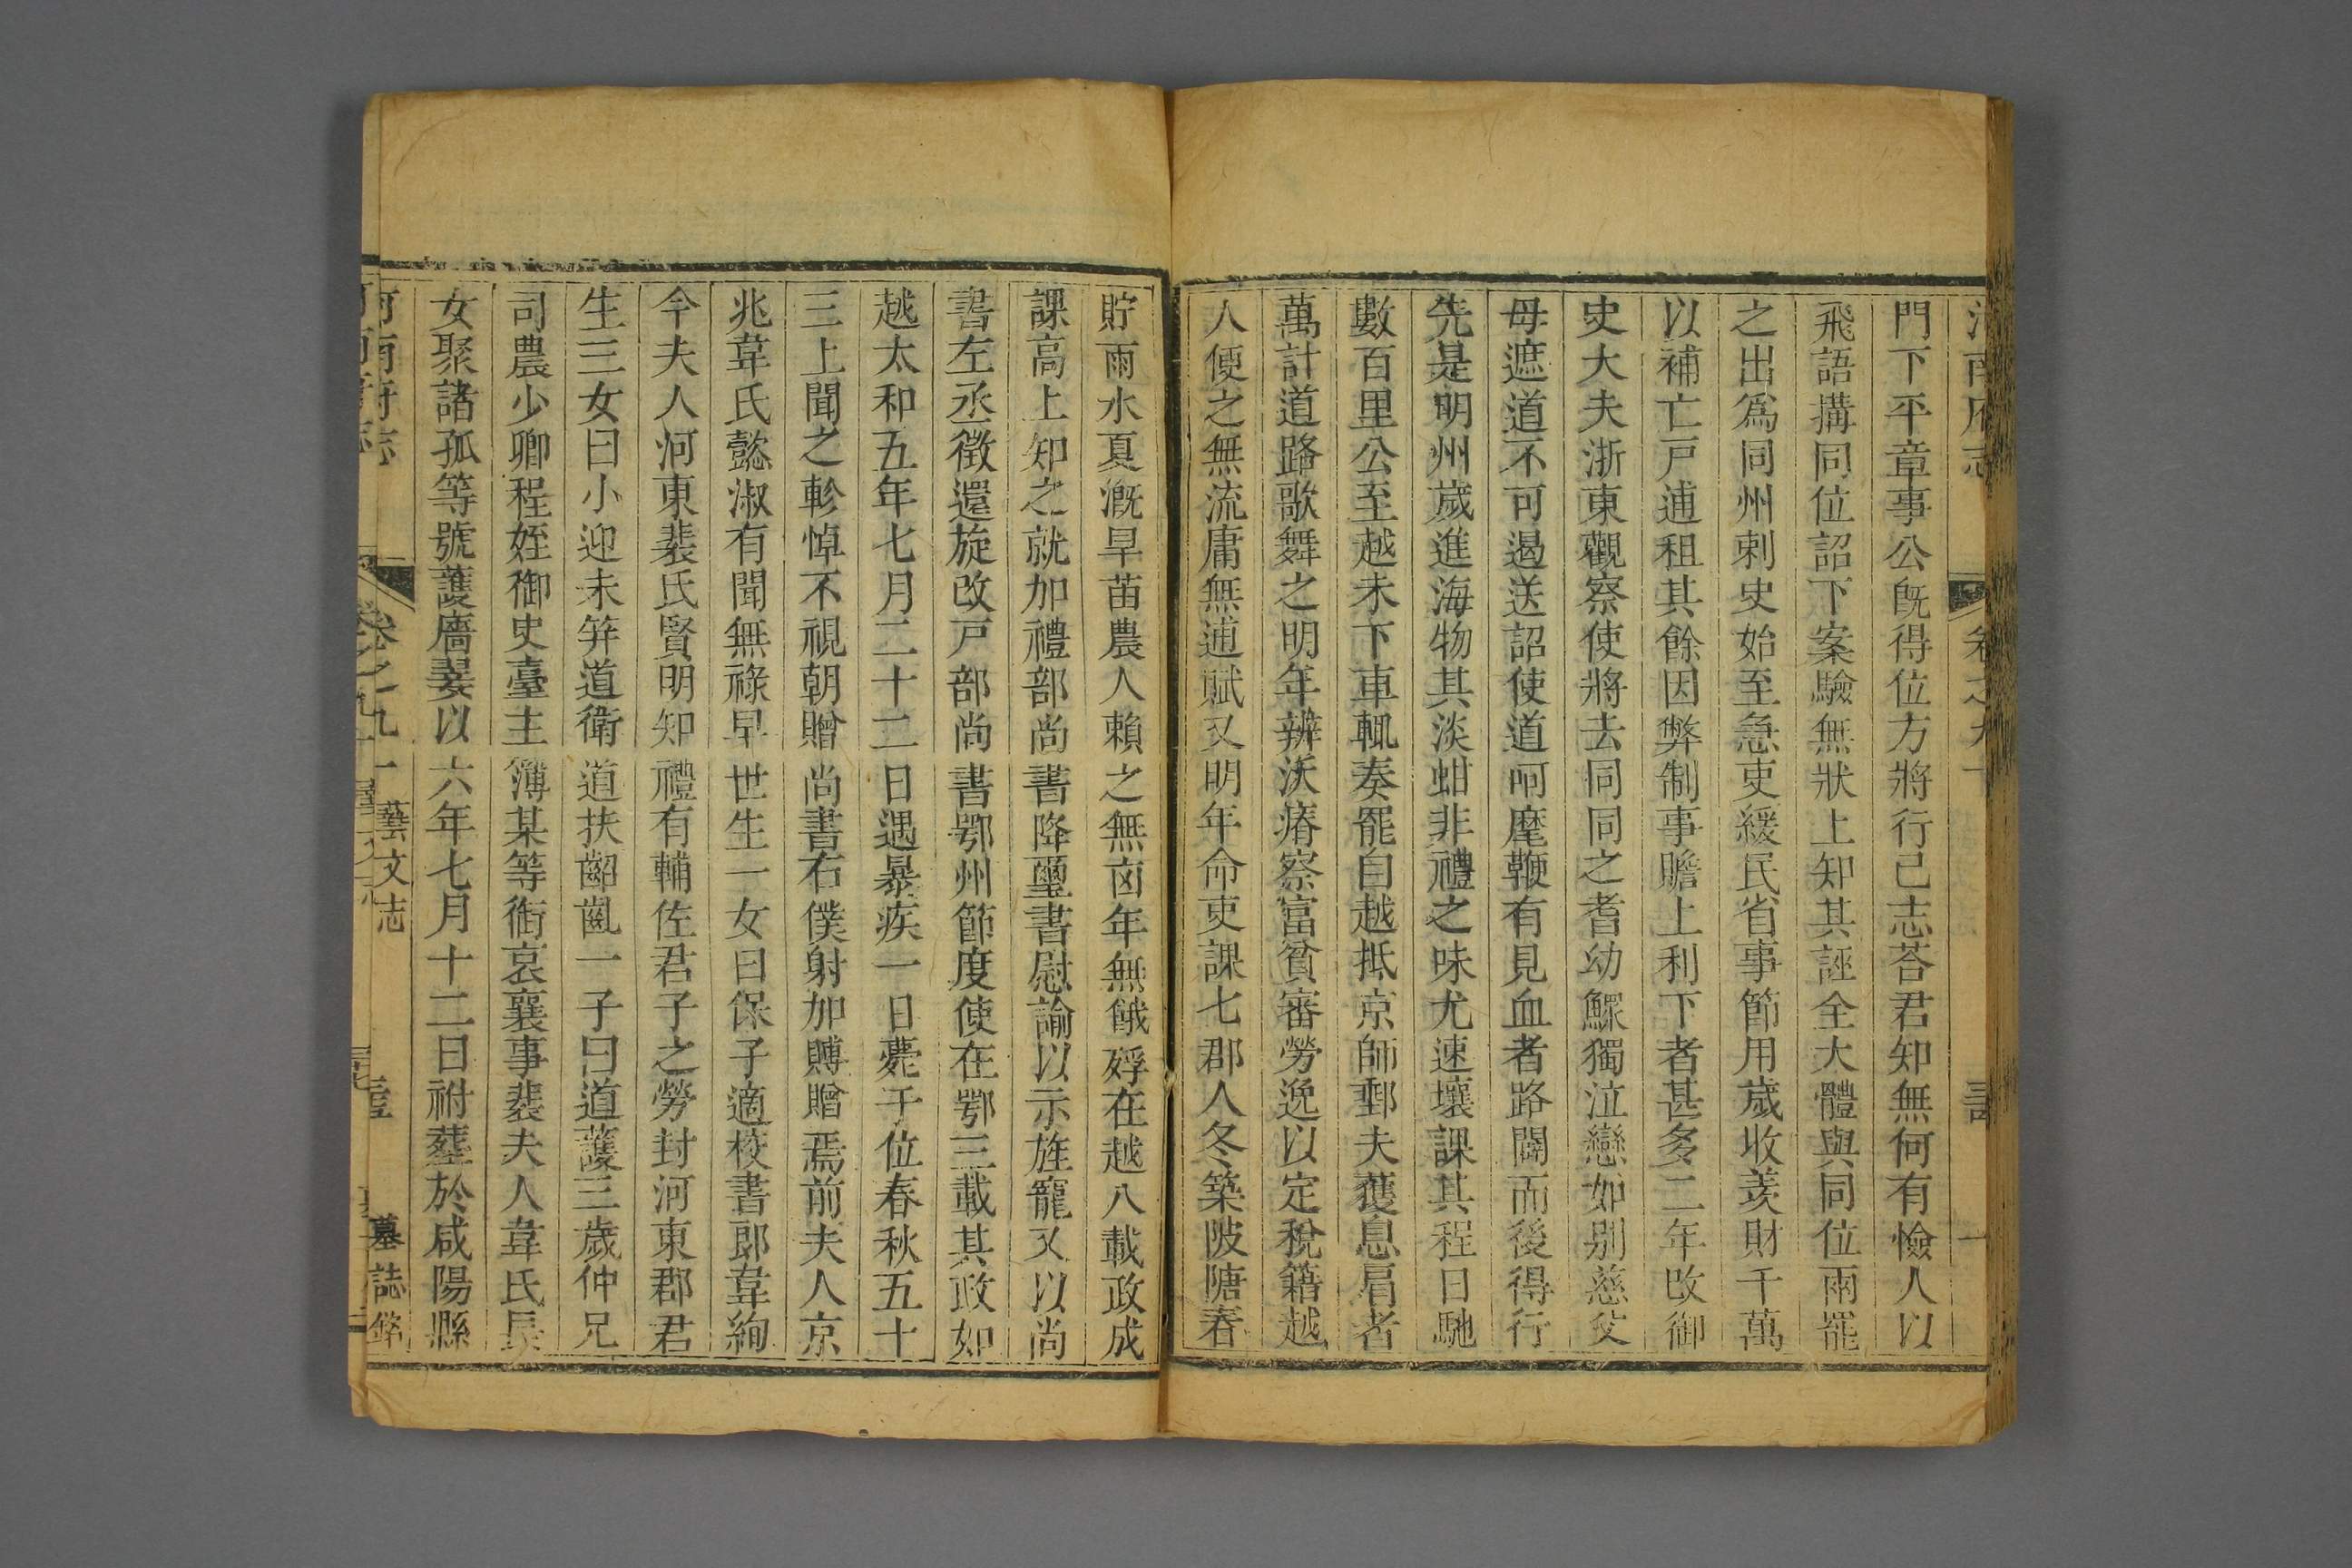 門下平章事公旣得位方將行己志荅君知無何有憸人以
飛語搆同位詔下案驗無狀上知其誣全大體與同位兩罷
之出爲同州刺史始至急吏緩民省事節用歲收羨財千萬
以補亡戸逋租其餘因弊制事贍上利下者甚多二年改御
史大夫浙東觀察使將去同同之耆幼鰥獨泣戀如别慈父
母遮道不可遏送詔使道呵麾鞭有見血者路闢而後得行
先是明州歲進海物其淡蚶非禮之味尤速壞課其程日馳
數百里公至越未下車輒奏罷自越抵京師郵夫獲息肩者
萬計道路歌舞之明年辨沃瘠察富貧審勞逸以定稅籍越
人便之無流庸無逋賦又明年命吏課七郡人冬築陂塘春
貯雨水夏漑旱苗農人賴之無凶年無餓殍在越八載政成
課高上知之就加禮部尚書降璽書慰諭以示旌寵又以尚
書左丞徵還旋改戸部尚書鄂州節度使在鄂三載其政如
越太和五年七月二十二日遇暴疾一日薨于位春秋五十
三上聞之軫悼不視朝贈尚書右僕射加賻贈焉前夫人京
兆韋氏懿淑有聞無祿早世生一女曰保子適校書郎韋絢
今夫人河東裴氏賢明知禮有輔佐君子之勞封河東郡君
生三女曰小迎未筓道衛道扶齠齓一子曰道護三歲仲兄
司農少卿程姪御史臺主簿某等銜哀襄事裴夫人韋氏長
女聚諸孤等號護廧翣以六年七月十二日祔葬於咸陽縣
河南府志 卷之九十一 藝文志 墓誌銘